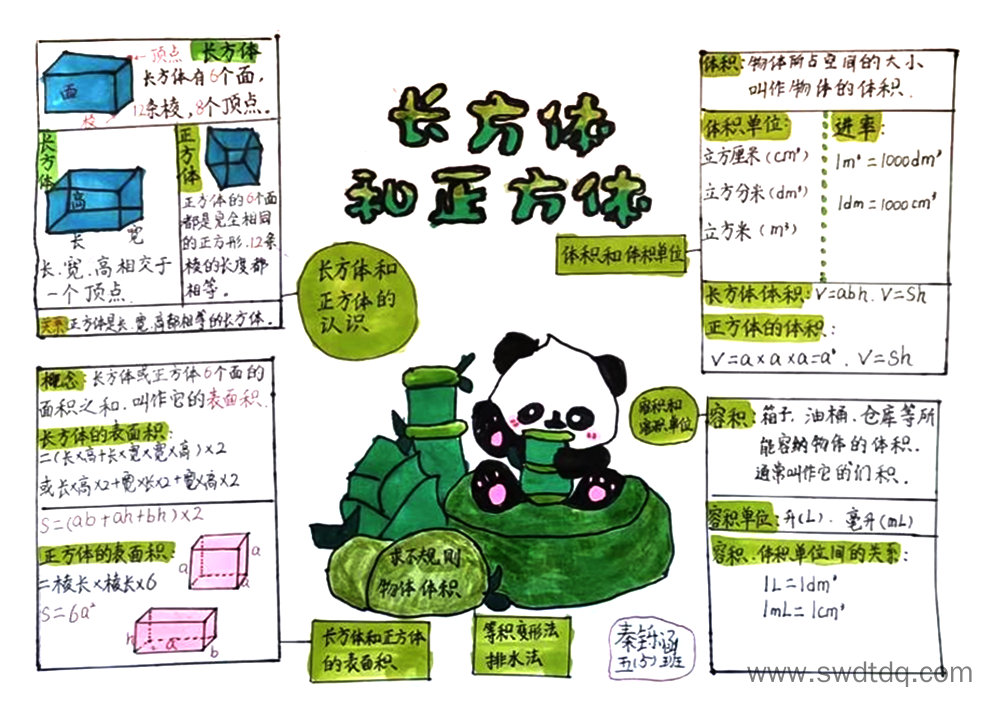 长方体
和正方体
顶点
长方体
面
棱
长方体有6个面,
12条棱,8个顶点。
长方体
高
长
宽
长、宽、高相交于
一个顶点
正方体
正方体的6个面
都是完全相同
的正方形.12条
棱的长度都
相等。
关系:正方体是长、宽、高都相等的长方体。
长方体和
正方体的
认识
概念:长方体或正方体6个面的
面积之和.叫作它的表面积.
长方体的表面积:
=(长×高+长×宽×宽×高)×2
或长×高×2+宽×长×2+宽×高×2
S=(ab+ah+bh)×2
正方体的表面积:
=棱长×棱长×6
S=6a²
a
a
a
h
a
b
长方体和正方体
的表面积
求不规则
物体体积
等积变形法
排水法
体积和体积单位
体积:物体所占空间的大小
叫作物体的体积.
体积单位:
立方厘米(cm³)
立方分米(dm³)
立方米(m³)
进率:
1m³=1000dm³
1dm=1000cm³
长方体体积:V=abh.V=Sh
正方体的体积:
V=a×a×a=a³.V=Sh
容积和
容积单位
容积:箱子.油桶.仓库等所
能容纳物体的体积.
通常叫作它的们积.
容积单位:升(L).毫升(mL)
容积、体积单位间的关系:
1L=1dm³
1mL=1cm³
五(5)班
www.swdtdq.com